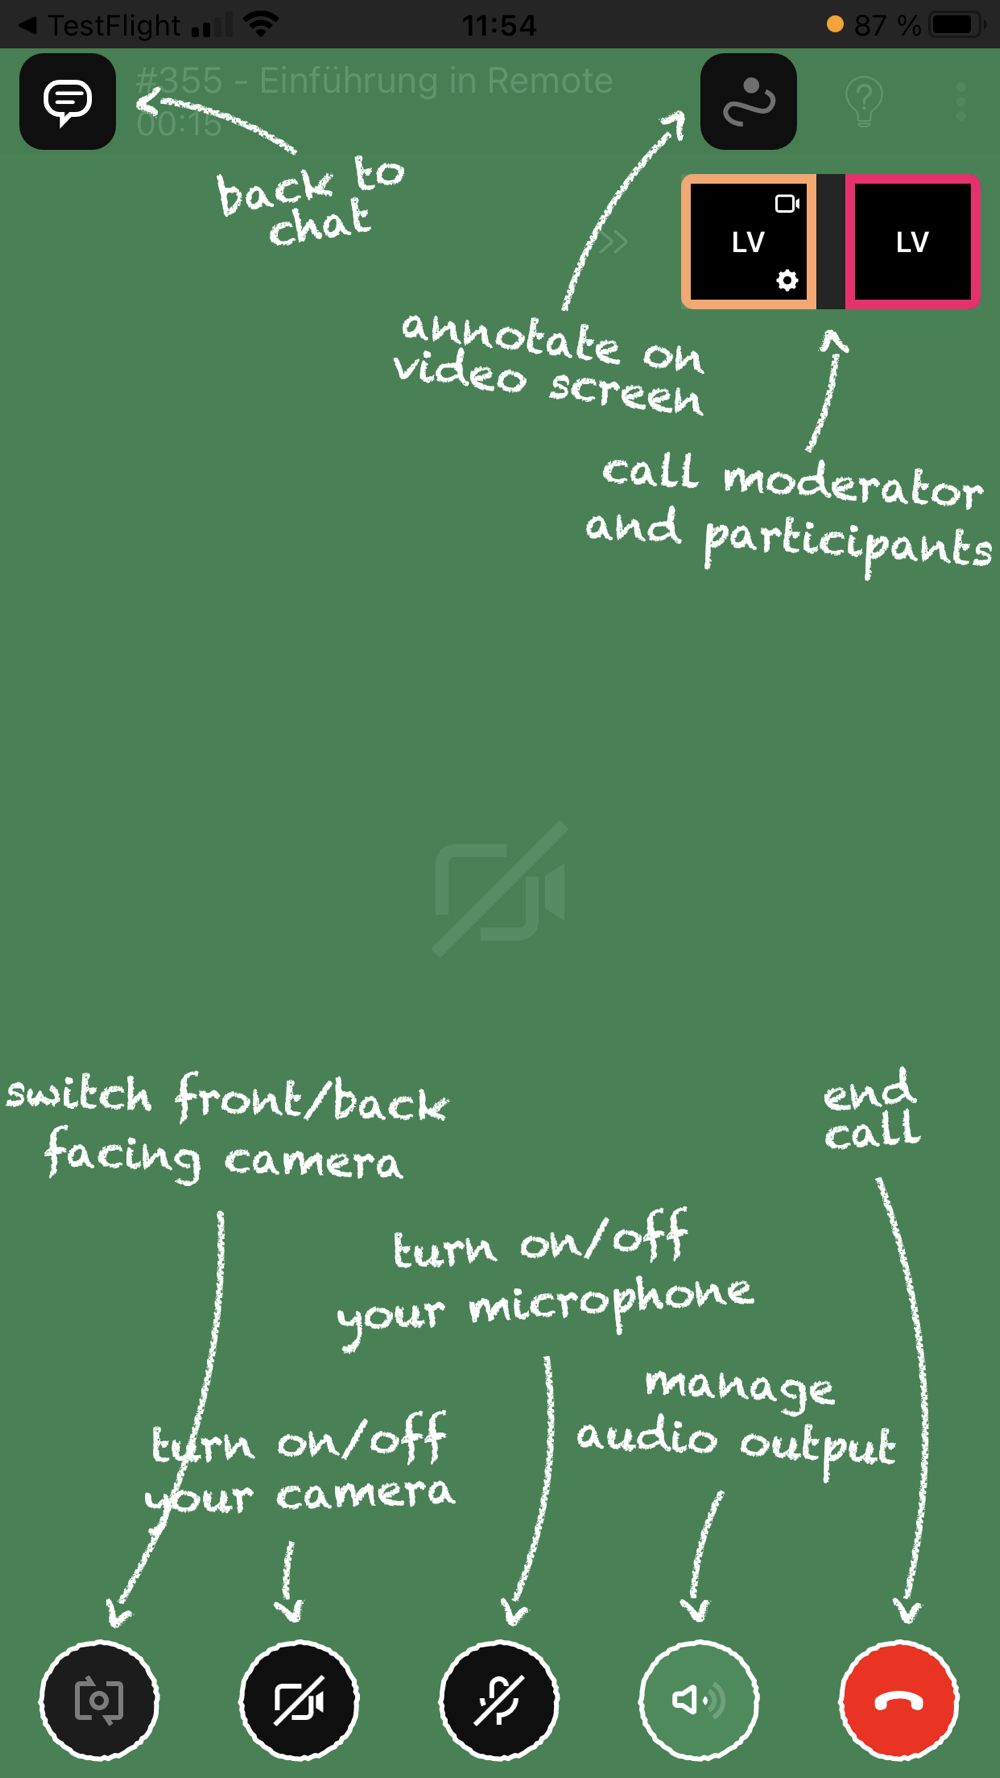 TestFlight 11:54 87 %
#355 - Einführung in Remote
00:15
back to
chat
LV LV
annotate on
video screen
call moderator
and participants
switch front/back
facing camera
end
call
turn on/off
your microphone
manage
audio output
turn on/off
your camera